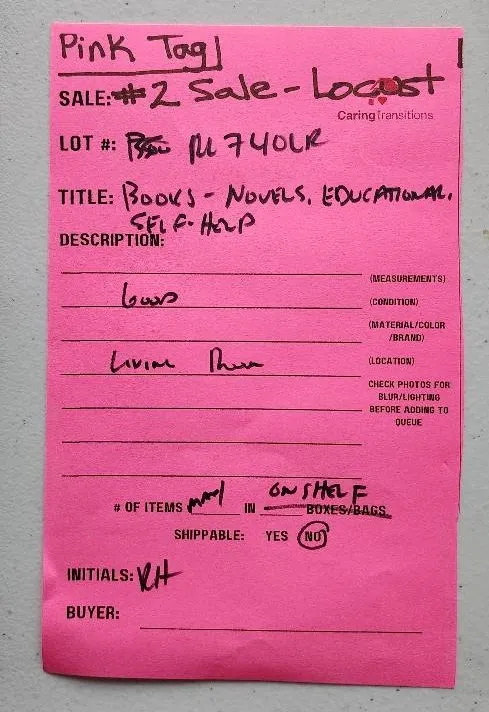 Pink Tag
SALE: #2 Sale - Locust
CaringTransitions
LOT #: 740LR
TITLE: BOOKS - NOVELS, EDUCATIONAL,
SELF-HELP
DESCRIPTION:
(MEASUREMENTS)
GOOD (CONDITION)
(MATERIAL/COLOR
/BRAND)
LIVING ROOM (LOCATION)
CHECK PHOTOS FOR
BLUR/LIGHTING
BEFORE ADDING TO
QUEUE
# OF ITEMS MANY IN ON SHELF BOXES/BAGS
SHIPPABLE: YES NO
INITIALS: RH
BUYER: